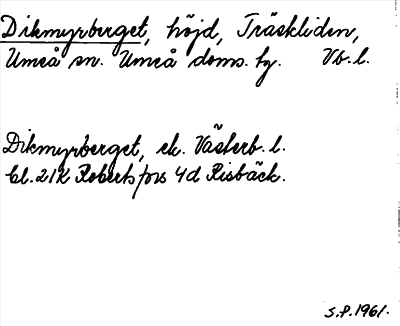 Dikmyrberget, höjd, Träskliden,
Umeå sn. Umeå doms. hg. Vb. l.
Dikmyrberget, ek. Västerb. l.
bl. 21K Robertsfors 4d Risbäck.
S.P. 1961.